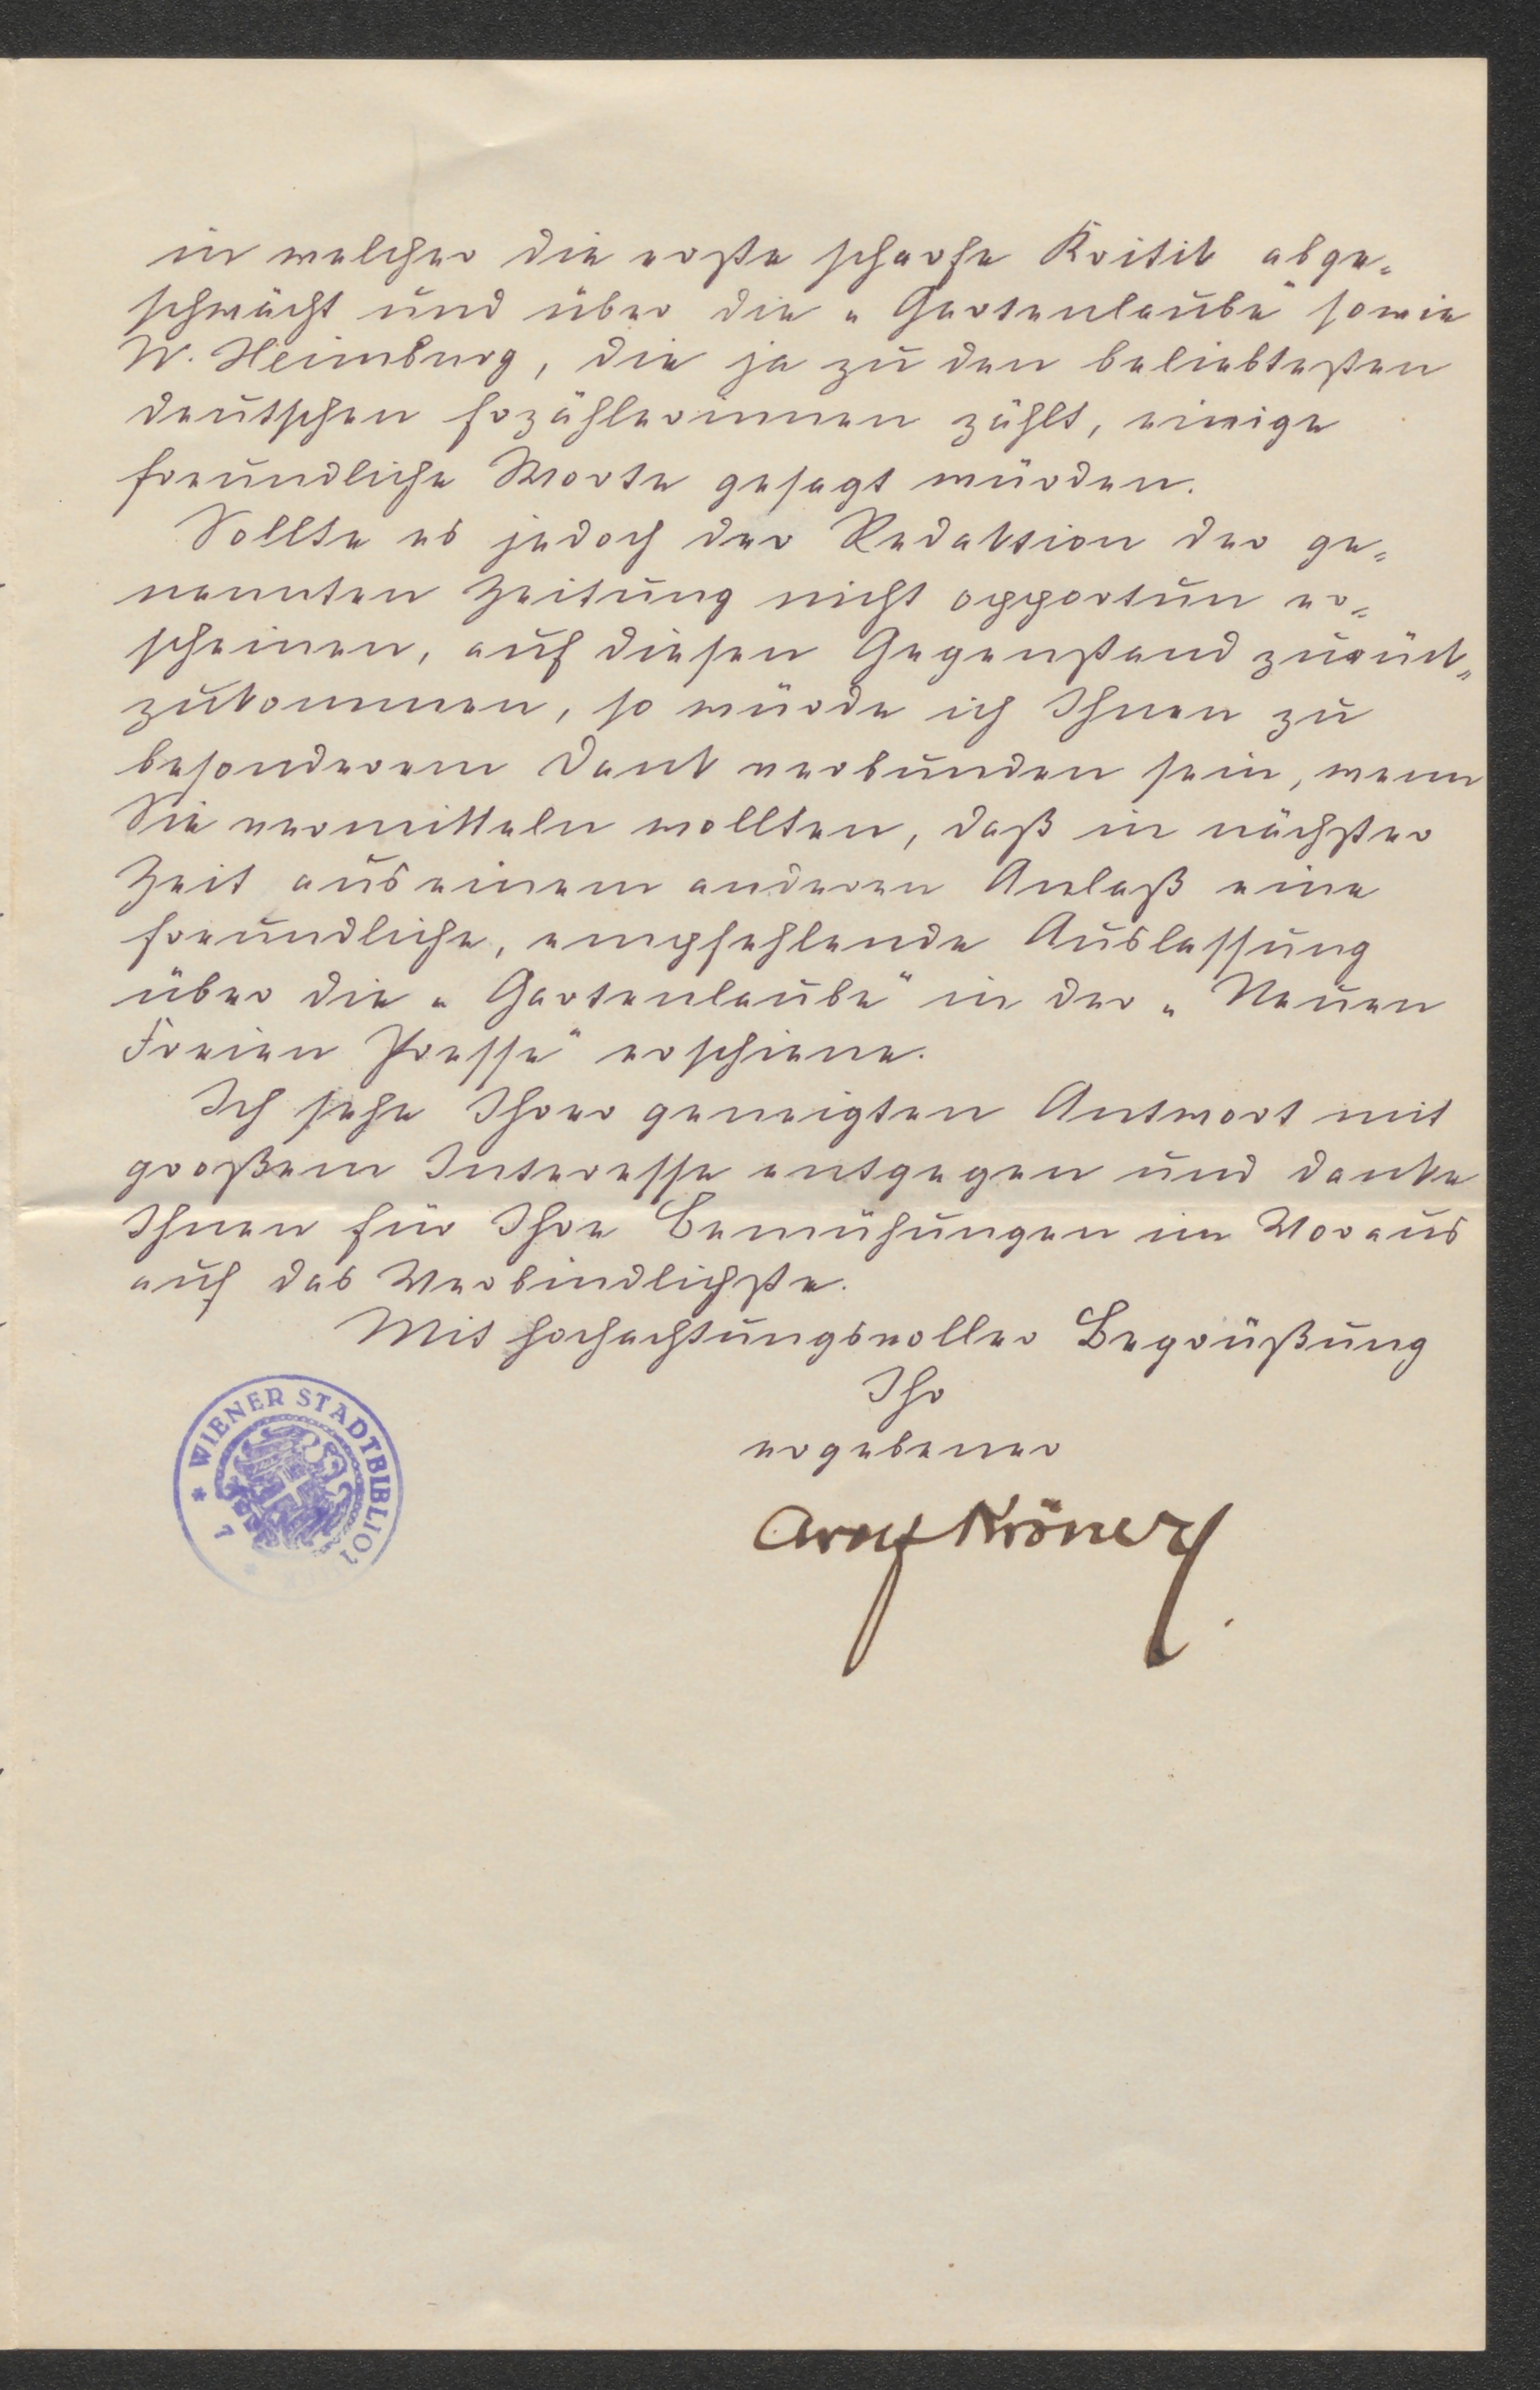 in welcher die erste scharfe Kritik abge-
schwächt und über die „Gartenlaube" sowie
W. Heimburg, die ja zu den beliebtesten
deutschen Erzählerinnen zählt, einige
freundliche Worte gesagt würden.
Sollte es jedoch der Redaktion der ge-
nannten Zeitung nicht opportun er-
scheinen, auf diesen Gegenstand zurück-
zukommen, so würde ich Ihnen zu
besonderem Dank verbunden sein, wenn
Sie vermitteln wollten, daß in nächster
Zeit aus einem anderen Anlaß eine
freundliche, empfehlende Auslassung
über die „Gartenlaube" in der „Neuen
Freien Presse" erschiene.
Ich sehe Ihrer geneigten Antwort mit
großem Interesse entgegen und danke
Ihnen für Ihre Bemühungen im Voraus
auf das Verbindlichste.
Mit hochachtungsvoller Begrüßung
Ihr
ergebener
Kröner
* WIENER STADTBIBLIOT